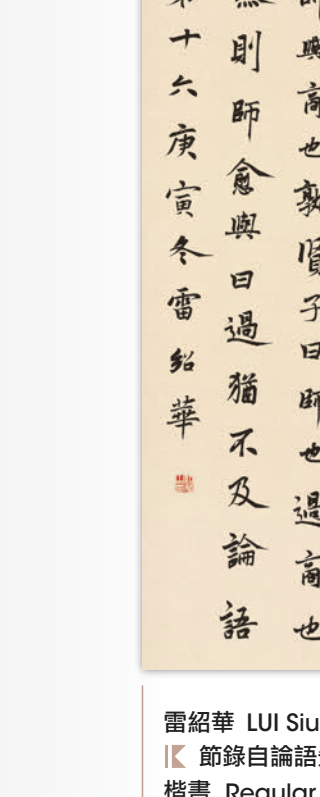 與商也孰賢子曰師也過商也
然則師愈與曰過猶不及論語
第十六庚寅冬雷紹華
雷紹華 LUI Siu
節錄自論語
楷書 Regular